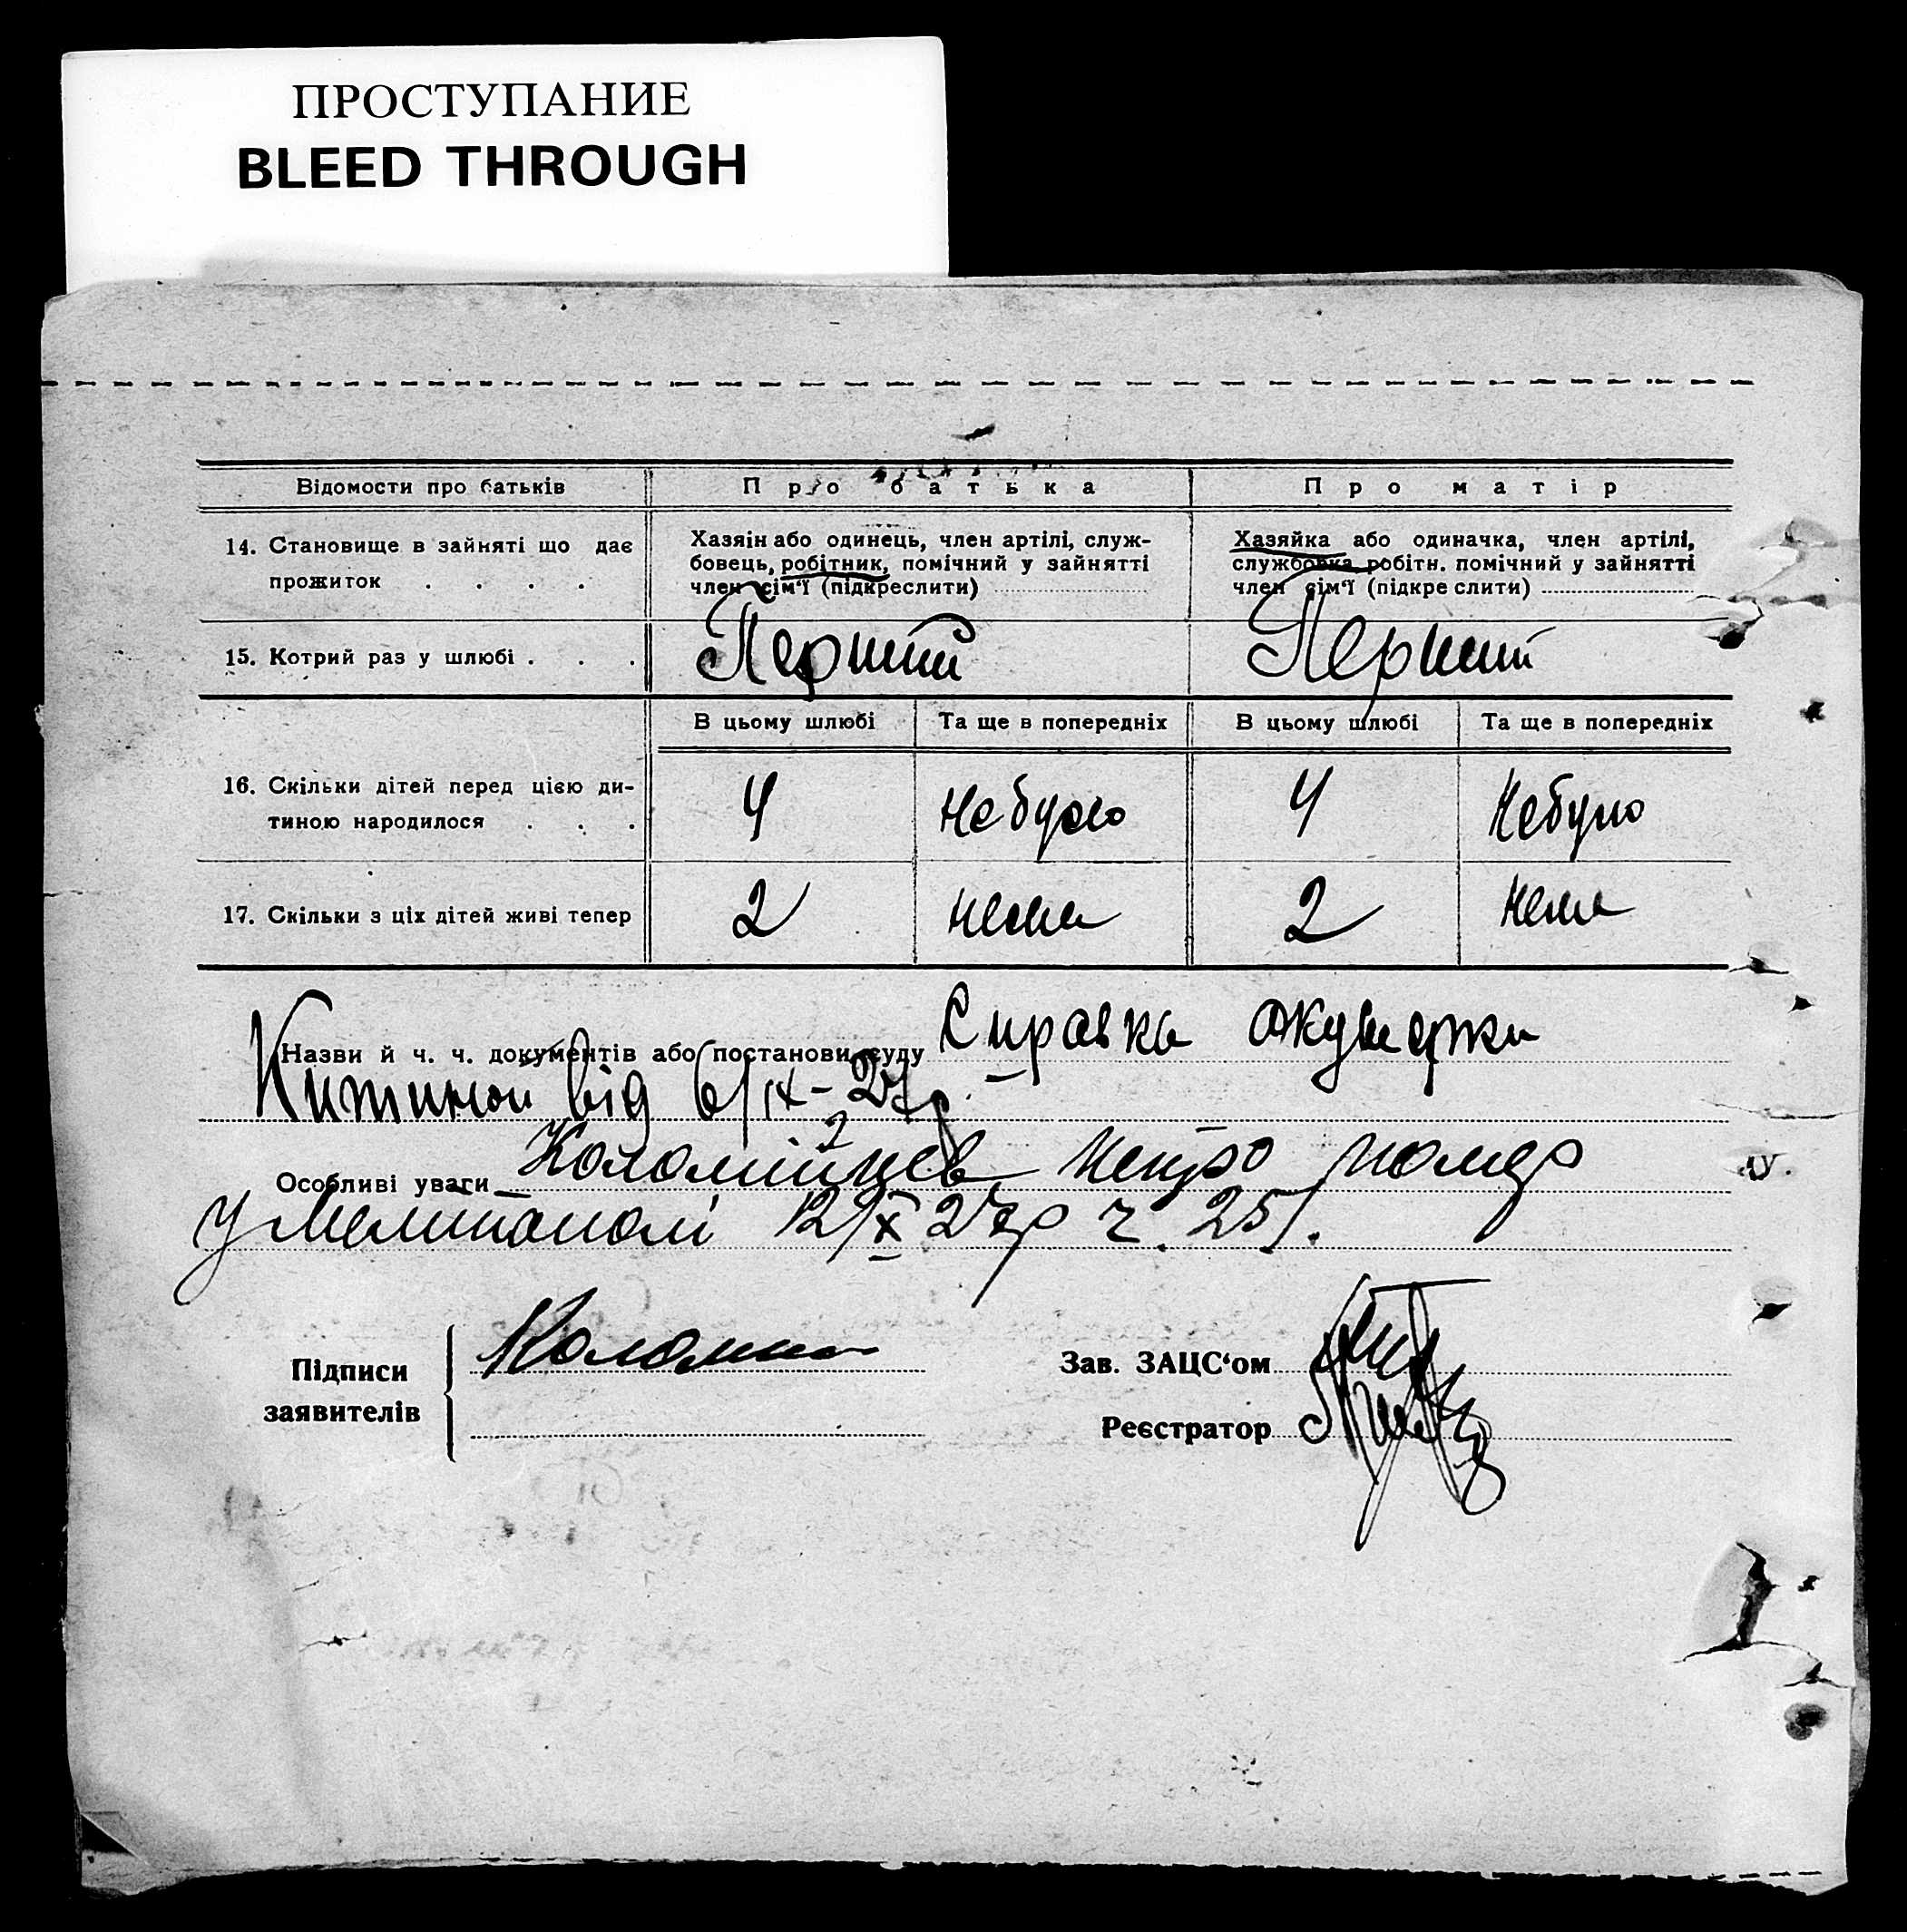 ПРОСТУПАНИЕ
BLEED THROUGH
Відомости про батьків
Про батька
Про матір
14. Становище в зайняті що дає
прожиток . . . .
Хазяін або одинець, член артілі, служ-
бовець, робітник, помічний у зайнятті
член сім'ї (підкреслити)
Хазяйка або одиначка, член артілі,
службовка робітн. помічний у зайнятті
член сім'ї (підкре слити)
15. Котрий раз у шлюбі . . .
Перший
Перший
В цьому шлюбі
Та ще в попередніх
В цьому шлюбі
Та ще в попередніх
16. Скільки дітей перед цією ди-
тиною народилося . . .
4
небуло
4
Небуло
17. Скільки з ціх дітей живі тепер
2
нема
2
нема
Назви й ч. ч. документів або постанови суду Справка акушерки
від 6/IX-27р.
Особливі уваги Коломійцев Петро помер
У Мелітополі 12/X 27р ч. 251.
Підписи
заявителів
Зав. ЗАЦС'ом
Реєстратор